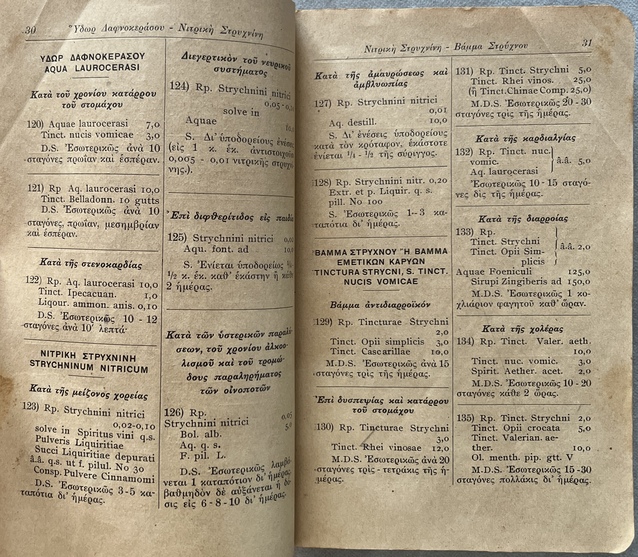 30
Ὕδωρ Δαφνοκεράσου - Νιτρικὴ Στρυχνίνη
ΥΔΩΡ ΔΑΦΝΟΚΕΡΑΣΟΥ
AQUA LAUROCERASI
Κατὰ τοῦ χρονίου κατάρρου
τοῦ στομάχου
120) Aquae laurocerasi 7,0
Tinct. nucis vomicae 3,0
D.S. Ἐσωτερικῶς ἀνὰ 10
σταγόνες πρωΐαν καὶ ἑσπέραν.
121) Rp Aq. laurocerasi 10,0
Tinct. Belladonn. 10 gutts
D.S. Ἐσωτερικῶς ἀνὰ 10
σταγόνες, πρωΐαν, μεσημβρίαν
καὶ ἑσπέραν.
Κατὰ τῆς στενοκαρδίας
122) Rp. Aq. laurocerasi 10,0
Tinct. Ipecacuan. 1,0
Liqour. ammon. anis. 0,10
D.S. Ἐσωτερικῶς 10 - 12
σταγόνες ἀνὰ 10' λεπτά·
ΝΙΤΡΙΚΗ ΣΤΡΥΧΝΙΝΗ
STRYCHNINUM NITRICUM
Κατὰ τῆς μείζονος χορείας
123) Rp. Strychnini nitrici
0,02-0,10
solve in Spiritus vini q.s.
Pulveris Liquiritiae
Succi Liquiritiae depurati
â.â. q.s. ut f. pilul. No 30
Consp. Pulvere Cinnamomi
D.S. Ἐσωτερικῶς 3-5 κα-
ταπότια δι' ἡμέρας.
Διεγερτικὸν τοῦ νευρικοῦ
συστήματος
124) Rp. Strychnini nitrici
0,05 -
solve in
Aquae
S. Δι' ὑποδορείους ἐνέσεις
(εἰς 1 κ. ἑκ. ἀντιστοιχοῦν
0,005 - 0,01 νιτρικῆς στρυχνί-
νης.).
Ἐπὶ διφθερίτιδος εἰς παιδία
125) Strychnini nitrici
Aqu. font. ad
S. Ἐνίεται ὑποδορείως
½ κ. ἑκ. καθ' ἑκάστην ἢ κάθε
2 ἡμέρας.
Κατὰ τῶν ὑστερικῶν παραλύ-
σεων, τοῦ χρονίου ἀλκοο-
λισμοῦ καὶ τοῦ τρομώ-
δους παραληρήματος
τῶν οἰνοποτῶν
126) Rp.
Strychnini nitrici
Bol. alb.
Aq. q. s.
F. pil. L.
D.S. Ἐσωτερικῶς λαμβά-
νεται 1 καταπότιον δι' ἡμέρας,
βαθμηδὸν δὲ αὐξάνεται ἡ δό-
σις εἰς 6 - 8 - 10 δι' ἡμέρας.
Νιτρικὴ Στρυχνίνη - Βάμμα Στρύχνου
31
Κατὰ τῆς ἀμαυρώσεως καὶ
ἀμβλυωπίας
127) Rp. Strychnini nitrici
0,01
Aq. destill. 10,0
S. Δι' ἐνέσεις ὑποδορείους
κατὰ τὸν κρόταφον, ἑκάστοτε
ἐνίεται ¼ - ½ τῆς σύριγγος.
128) Rp. Strychnini nitr. 0,20
Extr. et p. Liquir. q. s.
pill. No 100
S. Ἐσωτερικῶς 1-3 κα-
ταπότια δι' ἡμέρας.
ΒΑΜΜΑ ΣΤΡΥΧΝΟΥ Ἢ ΒΑΜΜΑ
ΕΜΕΤΙΚΩΝ ΚΑΡΥΩΝ
TINCTURA STRYCNI, S. TINCT.
NUCIS VOMICAE
Βάμμα ἀντιδιαρροϊκόν
129) Rp. Tincturae Strychni
2,0
Tinct. Opii simplicis 3,0
Tinct. Cascarillae 10,0
M.D.S. Ἐσωτερικῶς ἀνὰ 15
σταγόνες τρὶς τῆς ἡμέρας.
Ἐπὶ δυσπεψίας καὶ κατάρρου
τοῦ στομάχου
130) Rp. Tincturae Strychni
3,0
Tinct. Rhei vinosae 12,0
M.D.S. Ἐσωτερικῶς ἀνὰ 20
σταγόνες τρὶς - τετράκις τῆς ἡ-
μέρας.
131) Rp. Tinct. Strychni 5,0
Tinct. Rhei vinos. 25,0
(ἢ Tinct.Chinae Comp. 25,0)
M.D.S. Ἐσωτερικῶς 20 - 30
σταγόνες τρὶς τῆς ἡμέρας.
Κατὰ τῆς καρδιαλγίας
132) Rp. Tinct. nuc.
vomic. â.â. 5,0
Aq. laurocerasi
Ἐσωτερικῶς 10 - 15 σταγό-
νες δὶς τῆς ἡμέρας.
Κατὰ τῆς διαρροίας
133) Rp.
Tinct. Strychni
Tinct. Opii Sim- â.â. 2,0
plicis
Aquae Foeniculi 125,0
Sirupi Zingiberis ad 150,0
M.D.S. Ἐσωτερικῶς 1 κο-
χλιάριον φαγητοῦ καθ' ὥραν.
Κατὰ τῆς χολέρας
134) Rp. Tinct. Valer. aeth.
10,0
Tinct. nuc. vomic. 3,0
Spirit. Aether. acet. 2,0
M.D.S. Ἐσωτερικῶς 10 - 20
σταγόνες κάθε 2 ὥρας.
135) Rp. Tinct. Strychni 2,0
Tinct. Opii crocata 5,0
Tinct. Valerian. ae-
ther. 10,0
Ol. menth. pip. gtt. V
M.D.S. Ἐσωτερικῶς 15 - 30
σταγόνες πολλάκις δι' ἡμέρας.